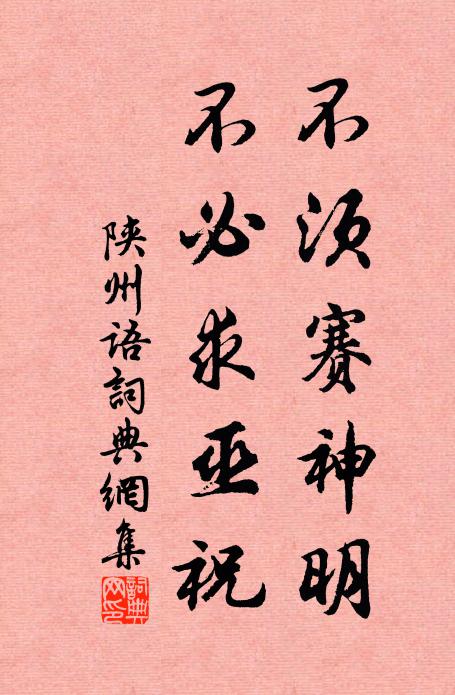 不须賽神明
不必求巫祝
陕州语詞典網集
詞典
网印